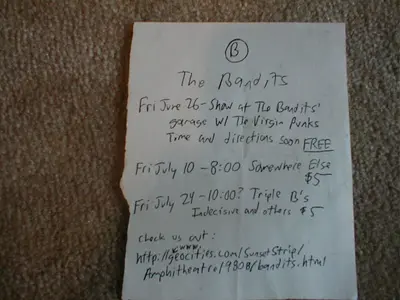 B
The Bandits
Fri June 26 - Show at The Bandits'
garage w/ The Virgin Punks
Time and directions soon FREE
Fri July 10 - 8:00 Somewhere Else
$5
Fri July 24 - 10:00? Triple B's
Indecisive and others $5
check us out:
http://www.geocities.com/SunsetStrip/
Amphitheatre/9808/bandits.html